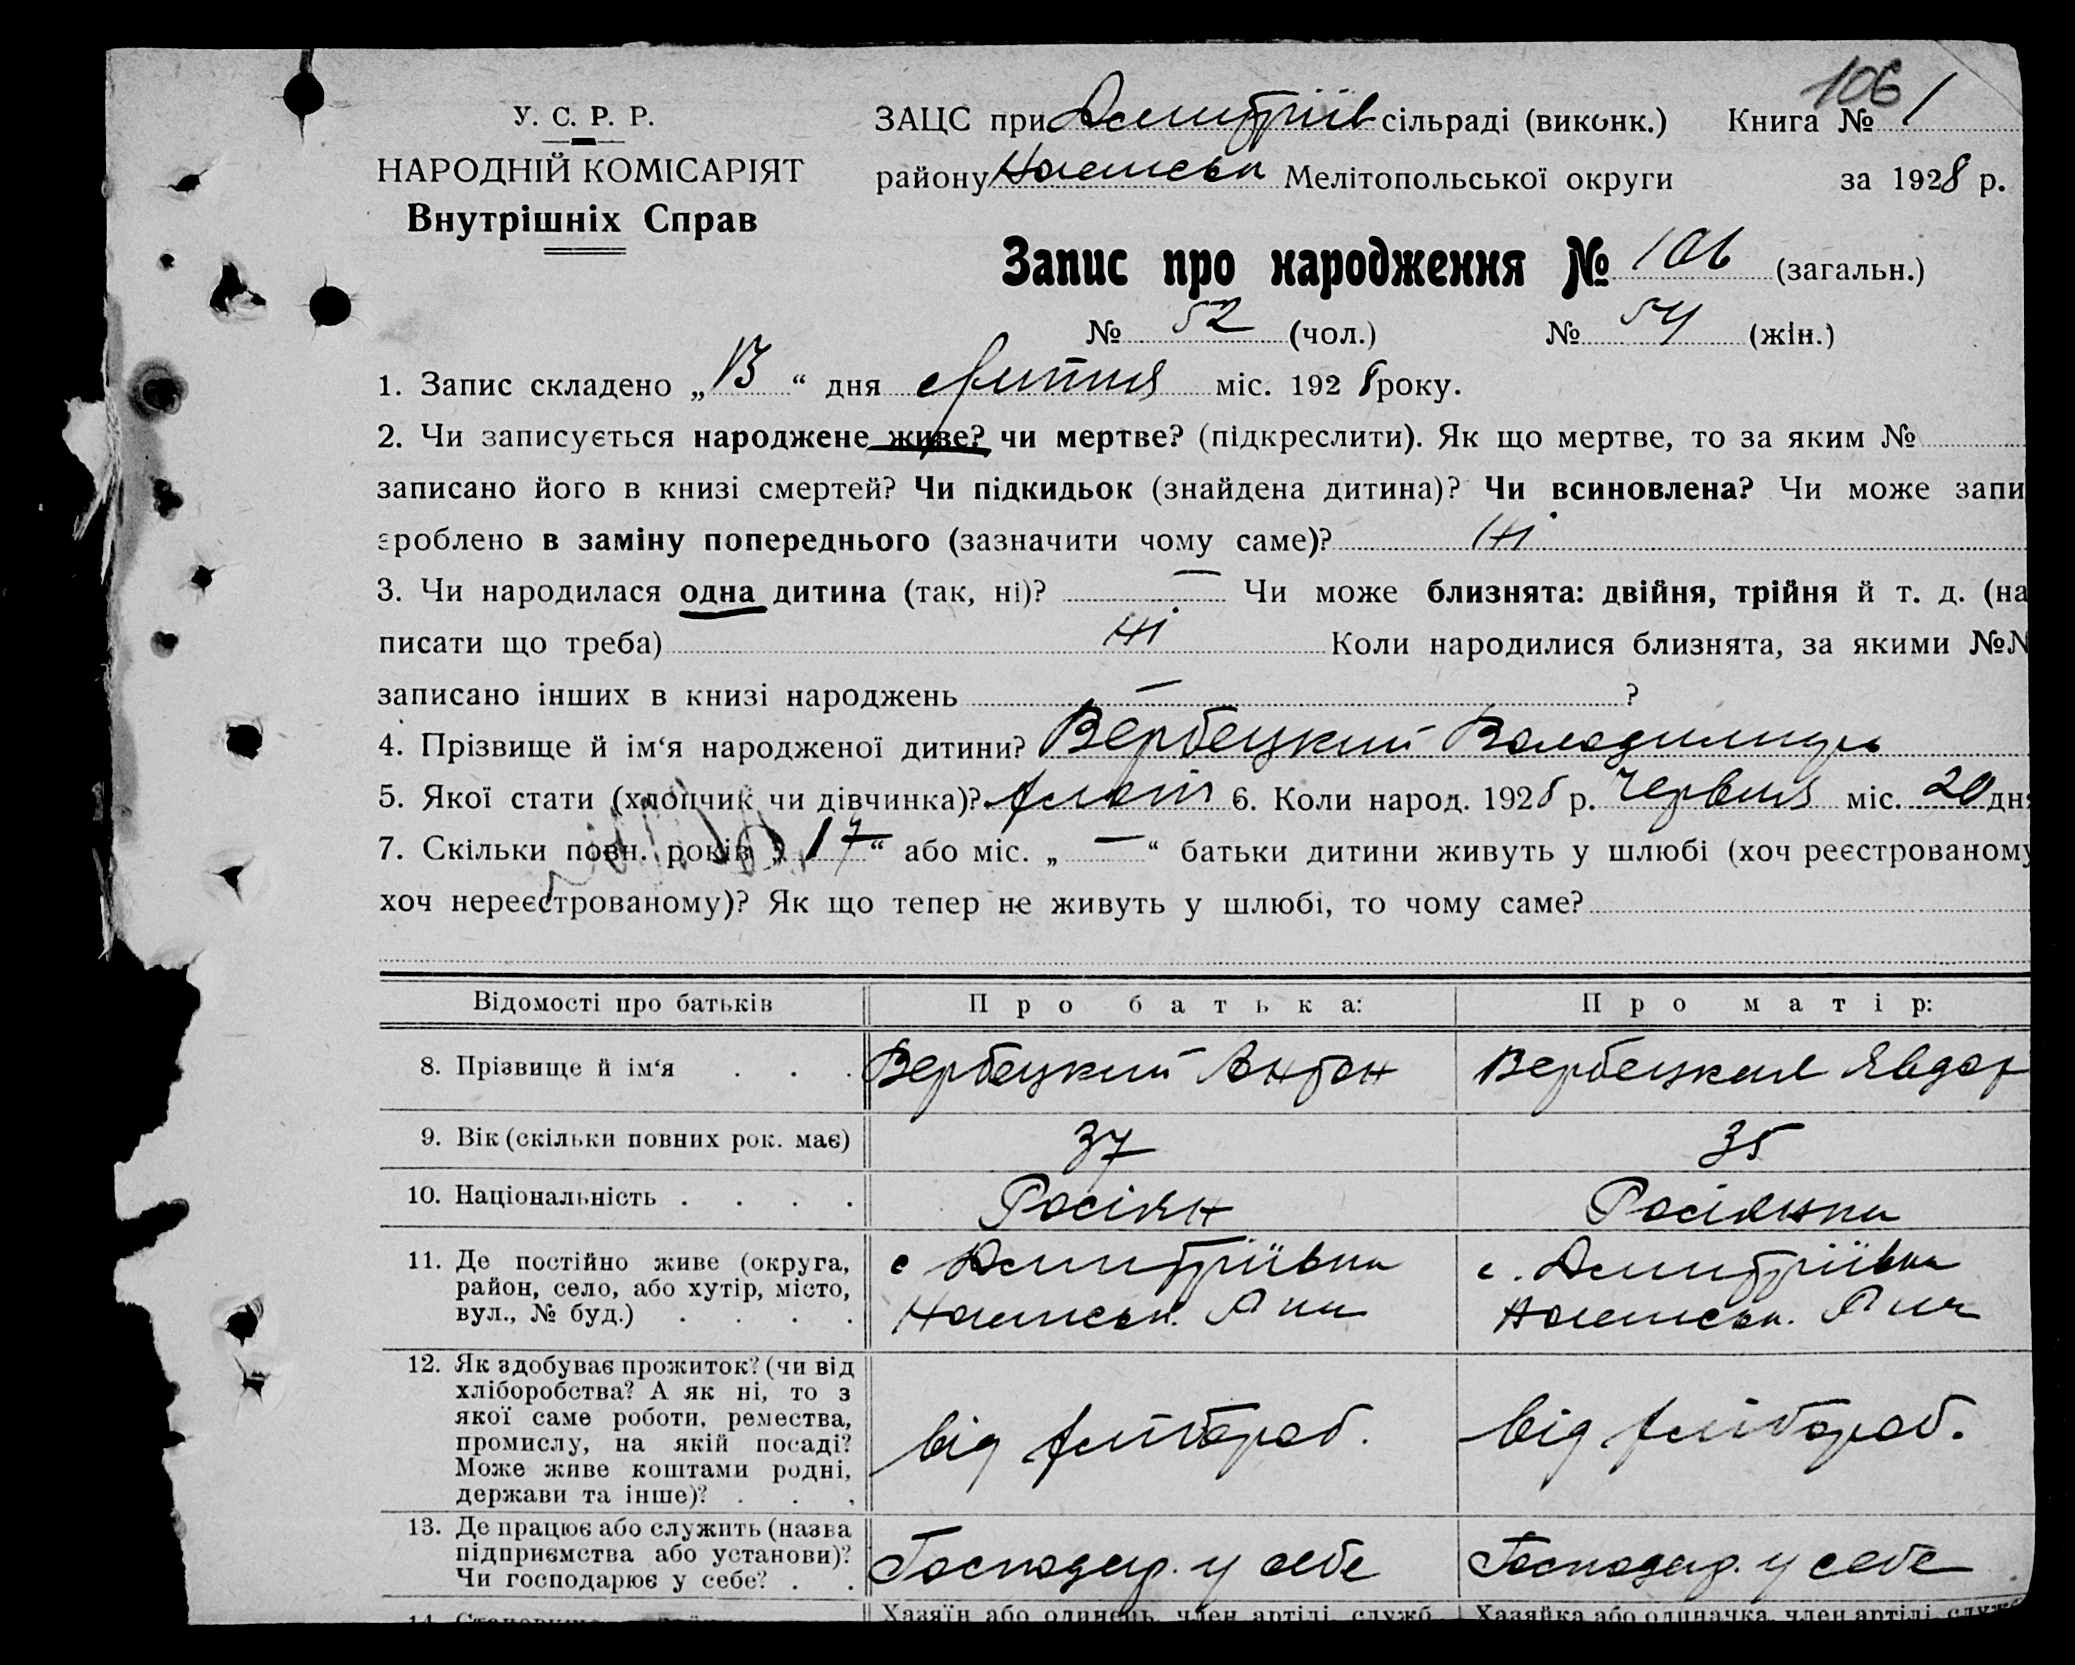 106
У. С. Р. Р.
НАРОДНІЙ КОМІСАРІЯТ
Внутрішніх Справ
ЗАЦС при Дмитріїв сільраді (виконк.) Книга № 1
району Мелітопольської округи за 1928 р.
Запис про народження № 106 (загальн.)
№ 52 (чол.) № 54 (жін.)
1. Запис складено „13“ дня липня міс. 1928 року.
2. Чи записується народжене живе? чи мертве? (підкреслити). Як що мертве, то за яким №
записано його в книзі смертей? Чи підкидьок (знайдена дитина)? Чи всиновлена? Чи може запи
зроблено в заміну попереднього (зазначити чому саме)? Ні
3. Чи народилася одна дитина (так, ні)? — Чи може близнята: двійня, трійня й т. д. (на
писати що треба) Ні Коли народилися близнята, за якими №№
записано інших в книзі народжень — ?
4. Прізвище й ім‘я народженої дитини? Вербецкий Володимирь
5. Якої стати (хлопчик чи дівчинка)? 6. Коли народ. 1928 р. Червня міс. 20 дня
7. Скільки повн. років „17“ або міс. „—“ батьки дитини живуть у шлюбі (хоч реєстрованому
хоч нереєстрованому)? Як що тепер не живуть у шлюбі, то чому саме?
Відомості про батьків Про батька: Про матір:
8. Прізвище й ім‘я Вербецкий Антон Вербецкая Явдок
9. Вік (скільки повних рок. має) 37 35
10. Національність Росіян Росіянка
11. Де постійно живе (округа,
район, село, або хутір, місто,
вул., № буд.)
с Дмитріївка
с. Дмитріївка
12. Як здобуває прожиток? (чи від
хліборобства? А як ні, то з
якої саме роботи, ремества,
промислу, на якій посаді?
Може живе коштами родні,
держави та інше)?
від хлібороб.
від хлібороб.
13. Де працює або служить (назва
підприємства або установи)?
Чи господарює у себе?
Господар. у себе
Господар. у себе
Хазяїн або одинець, член артілі, служб. Хазяйка або одиначка, член артілі, служб